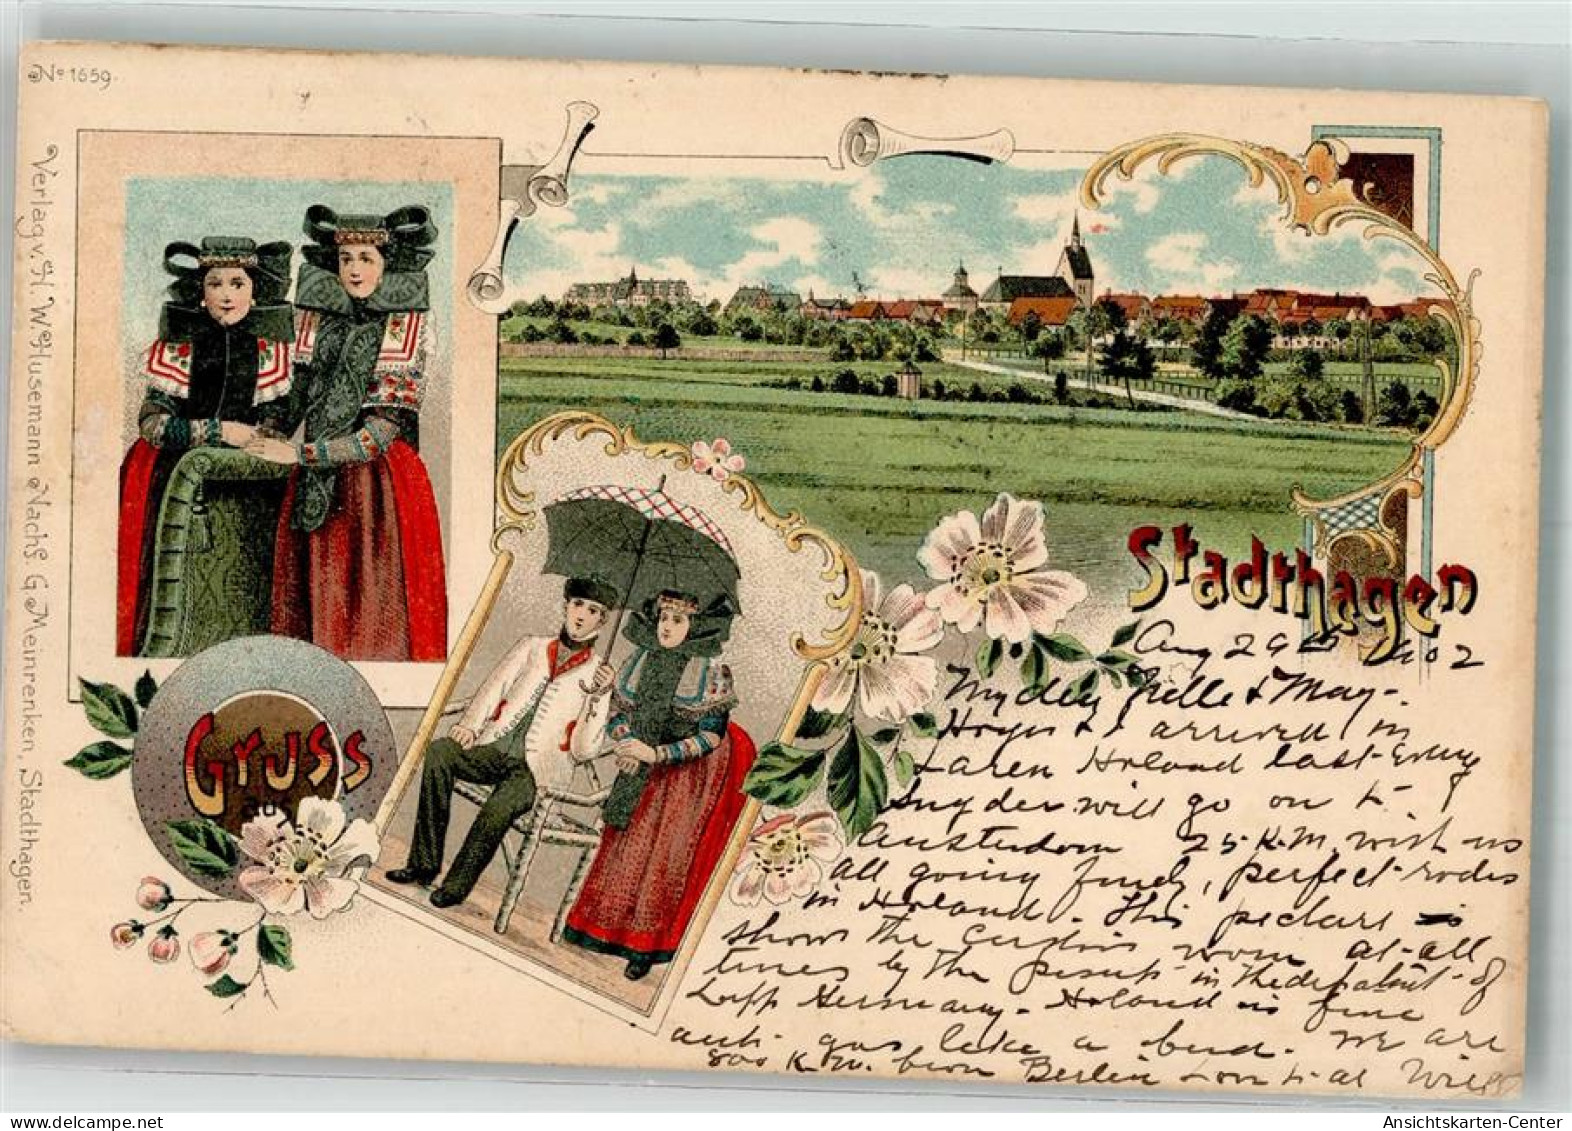 No 1659.
Verlag v. H. W. Husemann Nachf. G. Meinrenken, Stadthagen.
Gruss
aus
Stadthagen
Aug 29th 1902
My dear Nelle & May-
& I arrived in
Laren Holand last
Snyder will go on to
Amsterdam 25 K.M. with us
all going finely, perfect rodes
in Holand. This picture is
shows the Custom worn at all
times by the in the of
Lipp Germany. Holand is fine
auto gos like a bird. We are
800 K.M. from Berlin
Ansichtskarten-Center